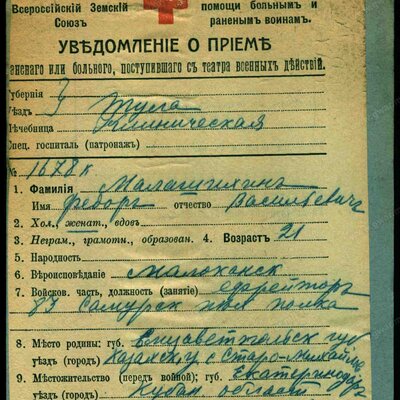 Всероссійскій Земскій
Союзъ
помощи больнымъ и
раненымъ воинамъ.
УВѢДОМЛЕНІЕ О ПРІЕМѢ
раненаго или больного, поступившаго съ театра военныхъ дѣйствій.
Губернія
Уѣздъ Тула
Лечебница Клиническая
Спец. госпиталь (патронажъ)
№ 1678 к
1. Фамилія Малашихинъ
Имя Федоръ отчество Васильевичъ
2. Хол., женат., вдовъ
3. Неграм., грамотн., образован. 4. Возрастъ 21
5. Народность
6. Вѣроисповѣданіе Малоканск
7. Войсков. часть, должность (занятіе) ефрейторъ
83 Самурск пѣх полка
8. Мѣсто родины: губ. Елизаветпольск губ
уѣздъ (город) Казахскій с Старо-Михайл
9. Мѣстожительство (передъ войной); губ. Екатеринодаръ
уѣздъ (город) Кубан област